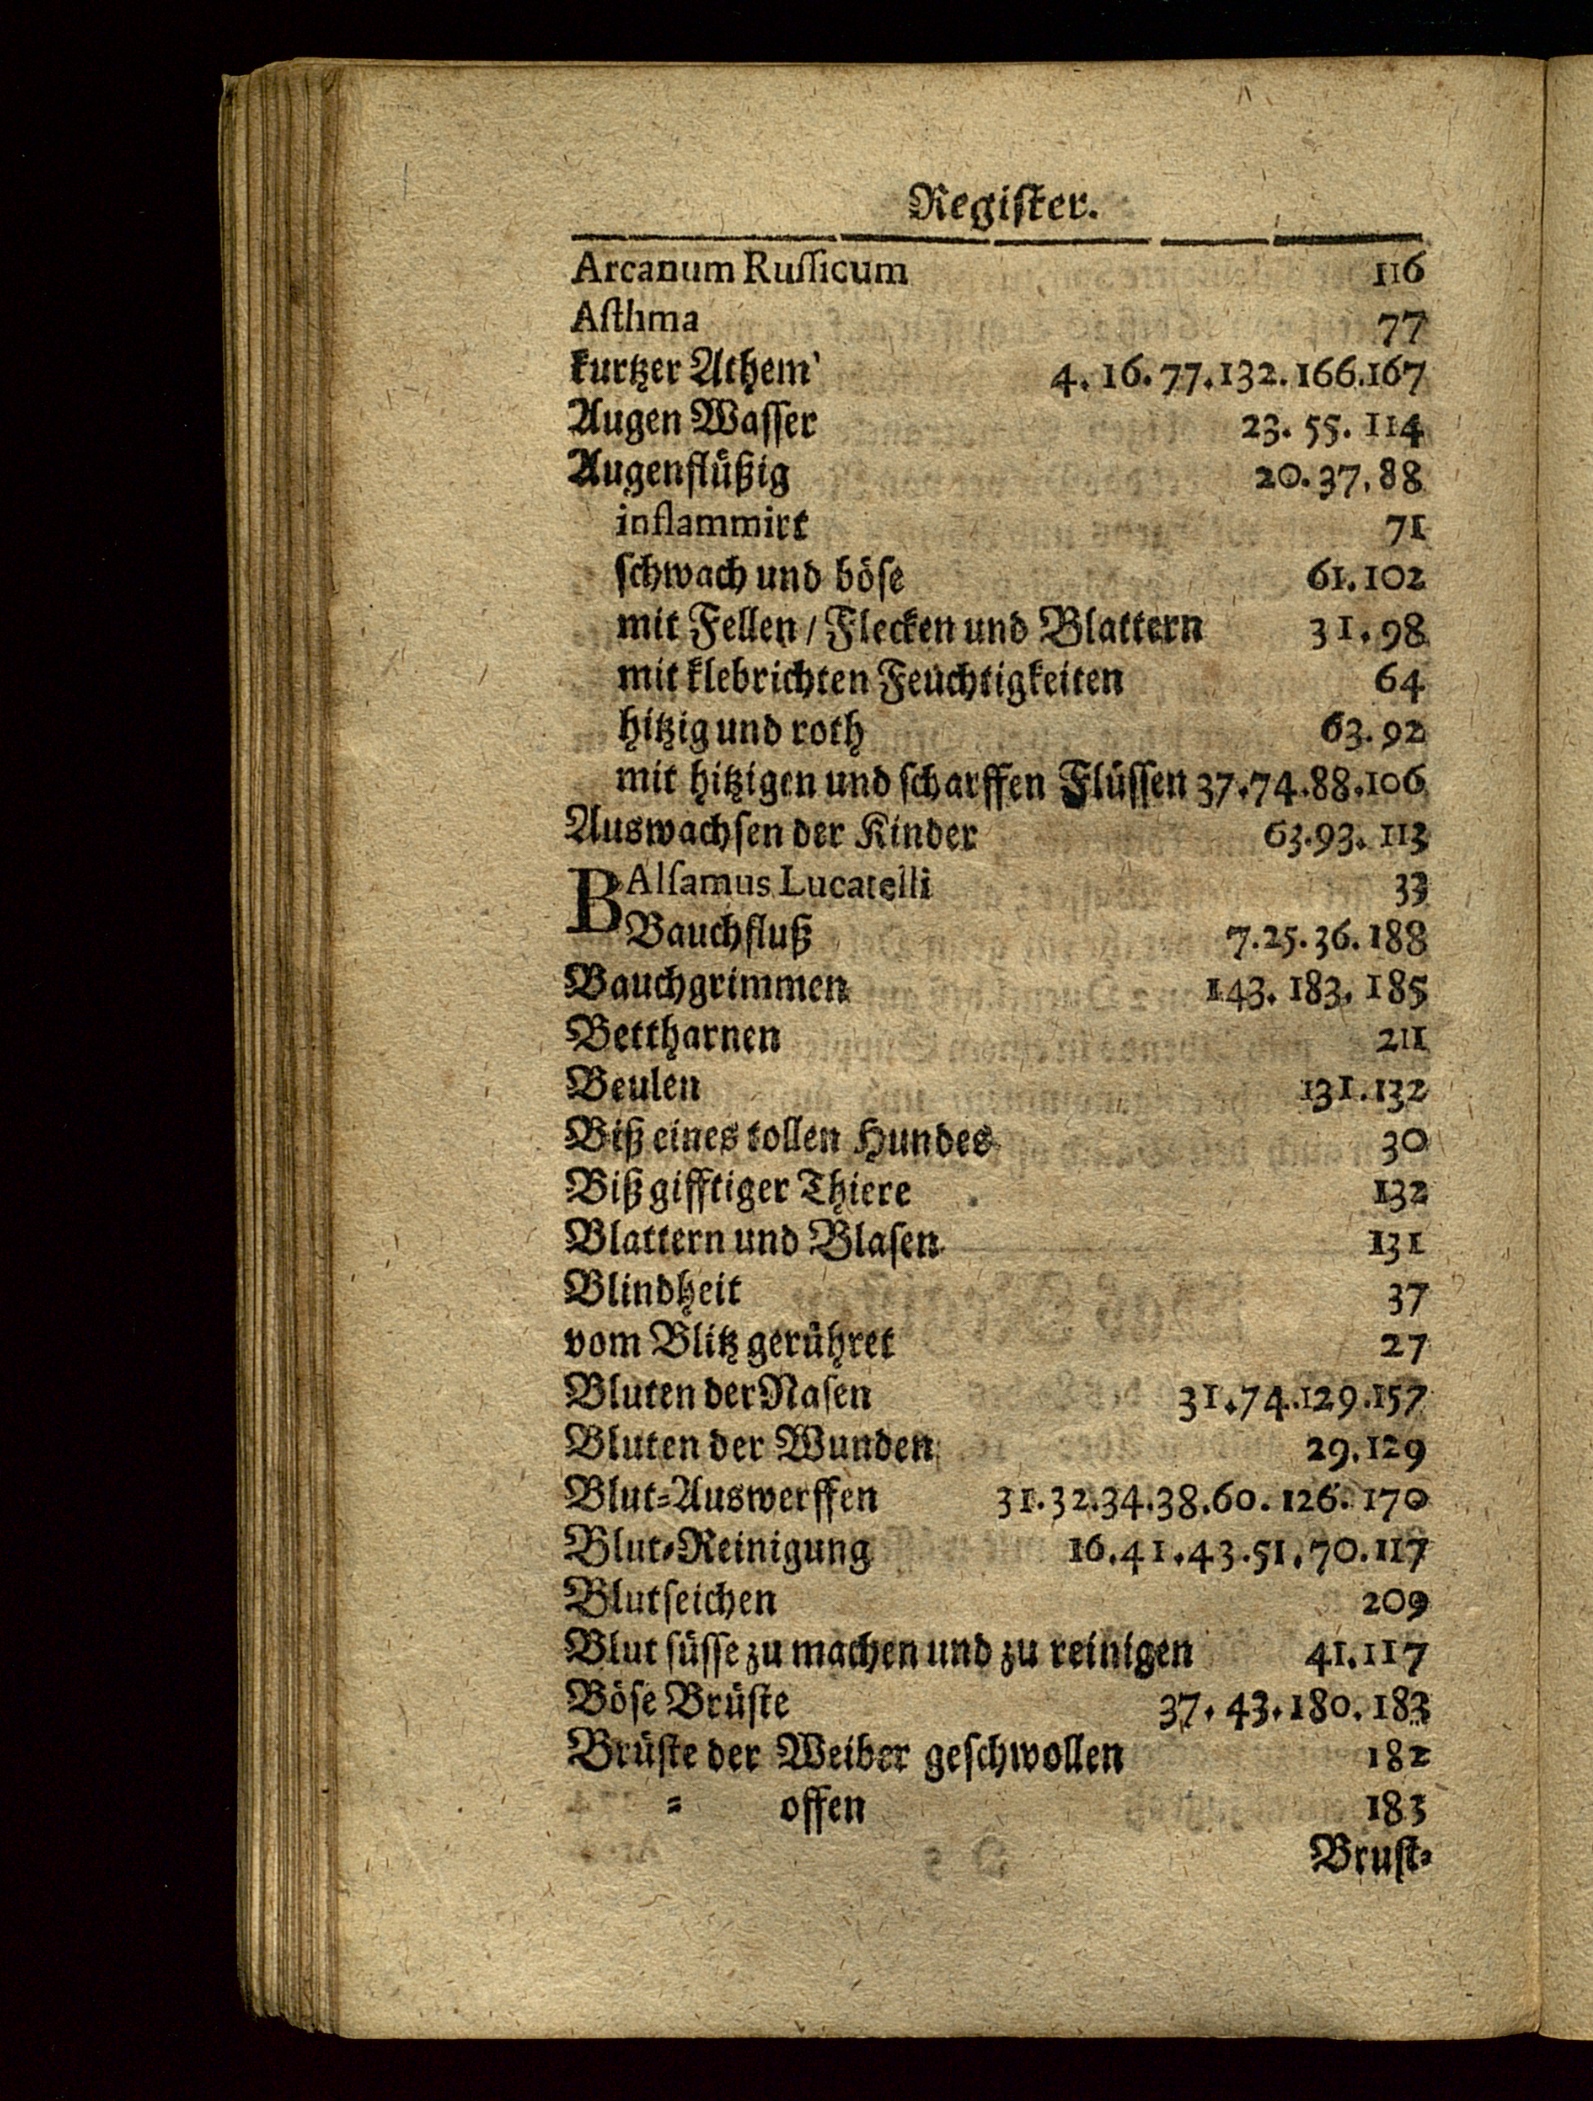 Register.
Arcanum Ruſſicum 116
Aſthma 77
kurtzer Athem 4. 16. 77. 132. 166. 167
Augen Waſſer 23. 55. 114
Augenflüßig 20. 37. 88
inflammirt 71
ſchwach und böſe 61. 102
mit Fellen / Flecken und Blattern 31. 98
mit klebrichten Feuchtigkeiten 64
hitzig und roth 63. 92
mit hitzigen und ſcharffen Flüſſen 37. 74. 88. 106
Auswachſen der Kinder 63. 93. 113
BAlſamus Lucatelli 33
Bauchfluß 7. 25. 36. 188
Bauchgrimmen 143. 183. 185
Bettharnen 211
Beulen 131. 132
Biß eines tollen Hundes 30
Biß gifftiger Thiere 132
Blattern und Blaſen 131
Blindheit 37
vom Blitz gerühret 27
Bluten der Naſen 31. 74. 129. 157
Bluten der Wunden 29. 129
Blut-Auswerffen 31. 32. 34. 38. 60. 126. 170
Blut-Reinigung 16. 41. 43. 51. 70. 117
Blutſeichen 209
Blut ſüſſe zu machen und zu reinigen 41. 117
Böſe Brüſte 37. 43. 180. 183
Brüſte der Weiber geſchwollen 182
= offen 183
Bruſt-